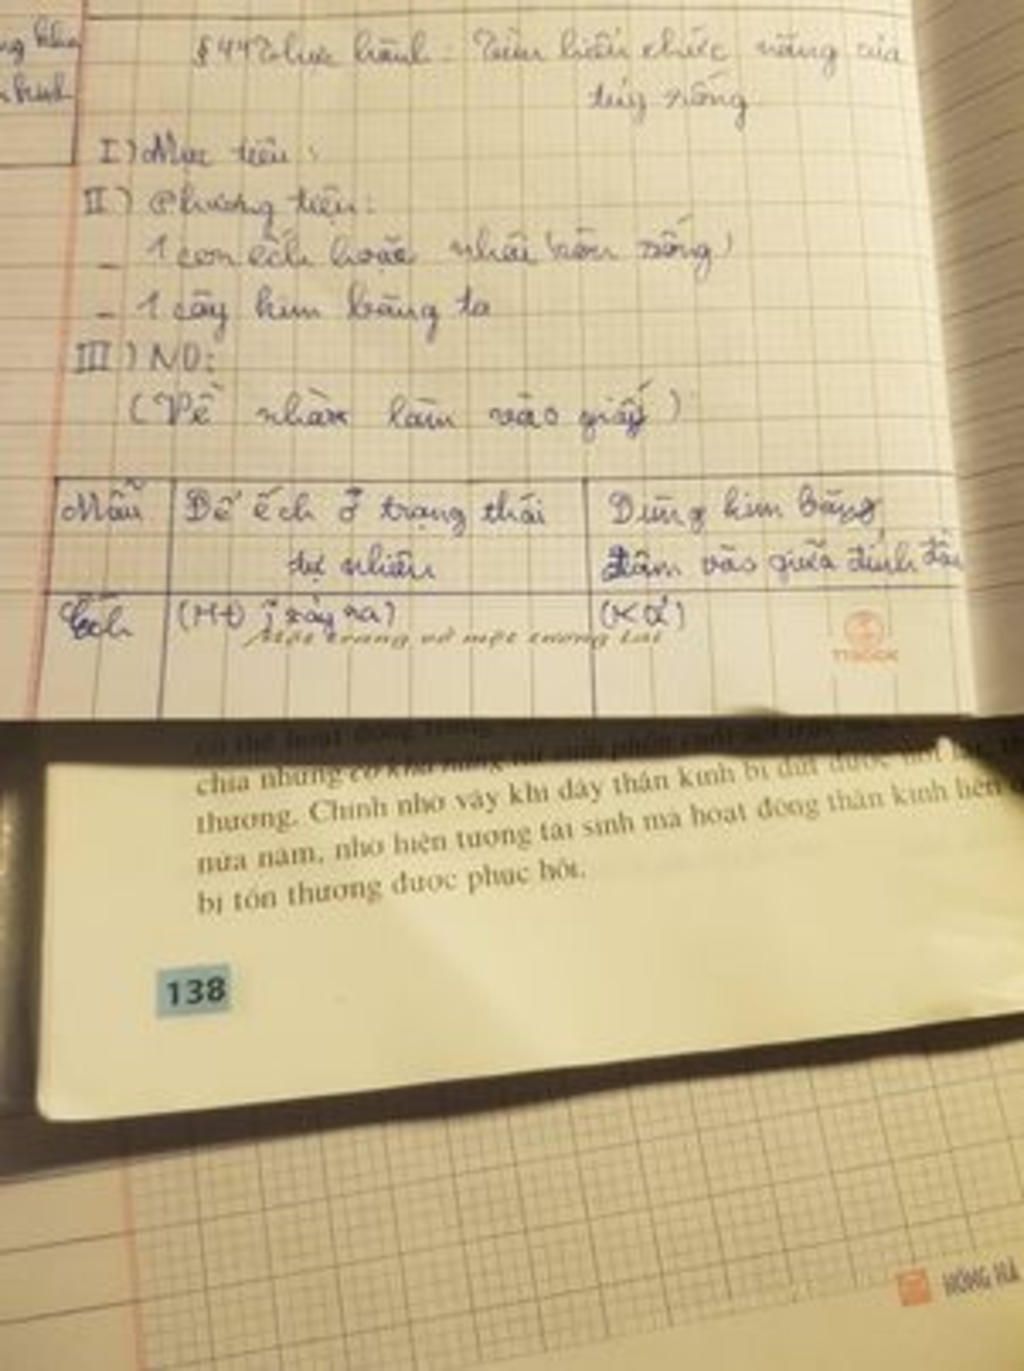 ng
§44 Thực hành: Tìm hiểu chức năng của
tủy sống
I) Mục tiêu:
II) Phương tiện:
- 1 con ếch hoặc nhái (còn sống)
- 1 cây kim băng to
III) ND:
(Về nhà làm vào giấy)
Mẫu
Để ếch ở trạng thái
tự nhiên
Dùng kim băng
đâm vào giữa đỉnh đầu
Ếch
(HĐ j xảy ra)
(KQ)
Một trang vở một tương lai
có thể hoạt động
chia nhưng có khả năng tái sinh phần cuối sợi trục
thương. Chính nhờ vậy khi dây thần kinh bị đứt được nối
nửa năm, nhờ hiện tượng tái sinh mà hoạt động thần kinh liên
bị tổn thương được phục hồi.
138
HỒNG HÀ